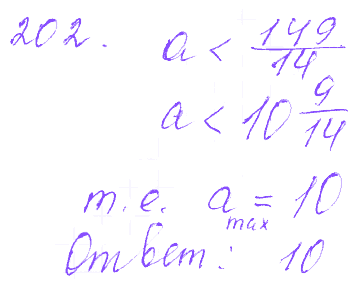 202. a < 149/14
a < 10 9/14
т.е. a max = 10
Ответ: 10